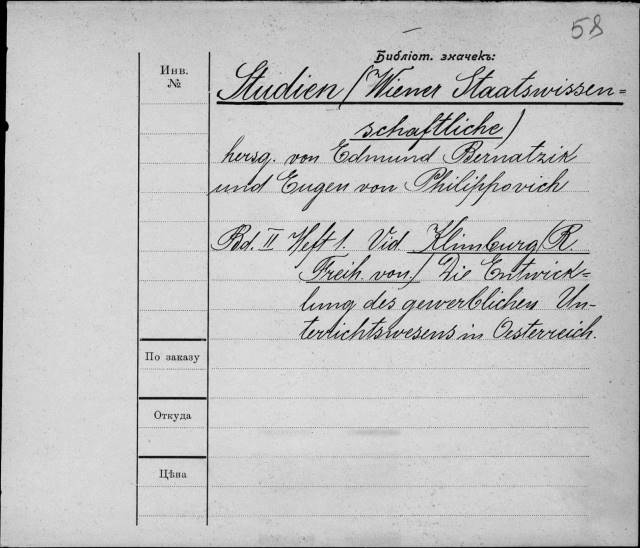 58
Библіот. значекъ:
Инв.
№
Studien (Wiener Staatswissen=
schaftliche)
hersg. von Edmund Bernatzik
und Eugen von Philippovich
Bd. II Heft 1. Vid Klimburg (R.
Freih. von) Die Entwick=
lung des gewerblichen Un-
terrichtswesens in Oesterreich.
По заказу
Откуда
Цѣна